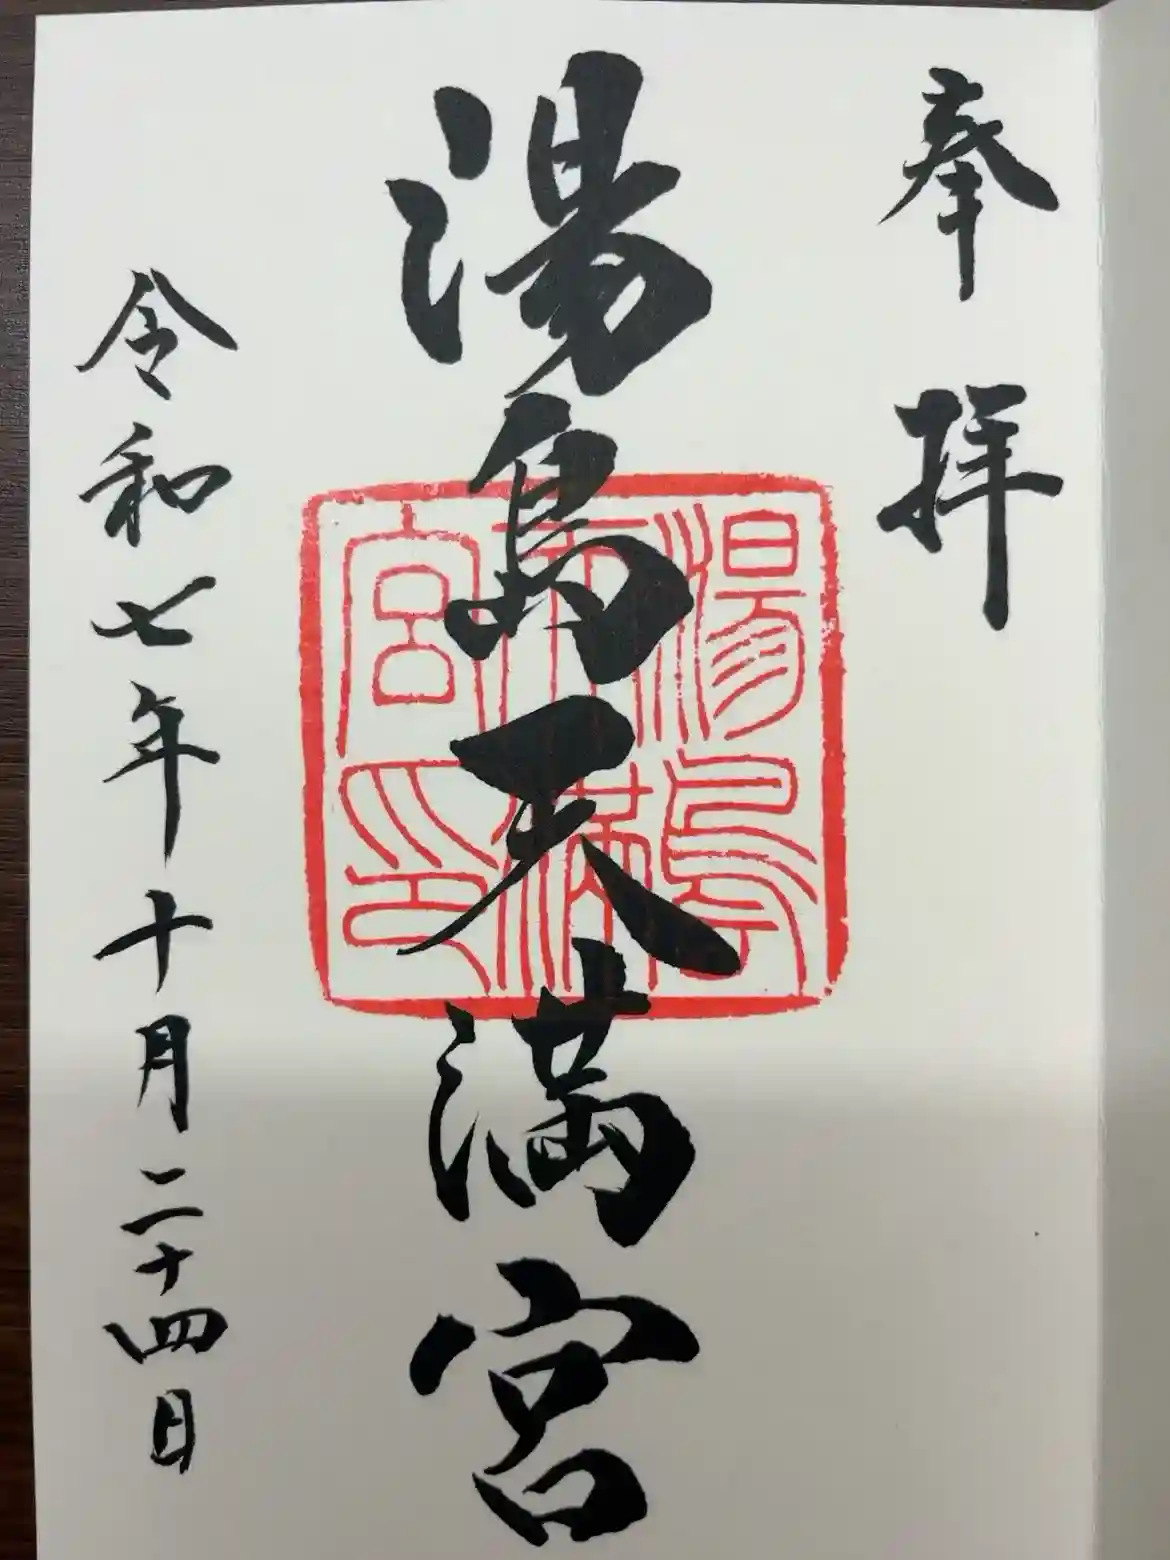 奉拝
湯島天満宮
湯島
天満
宮印
令和七年十月二十四日